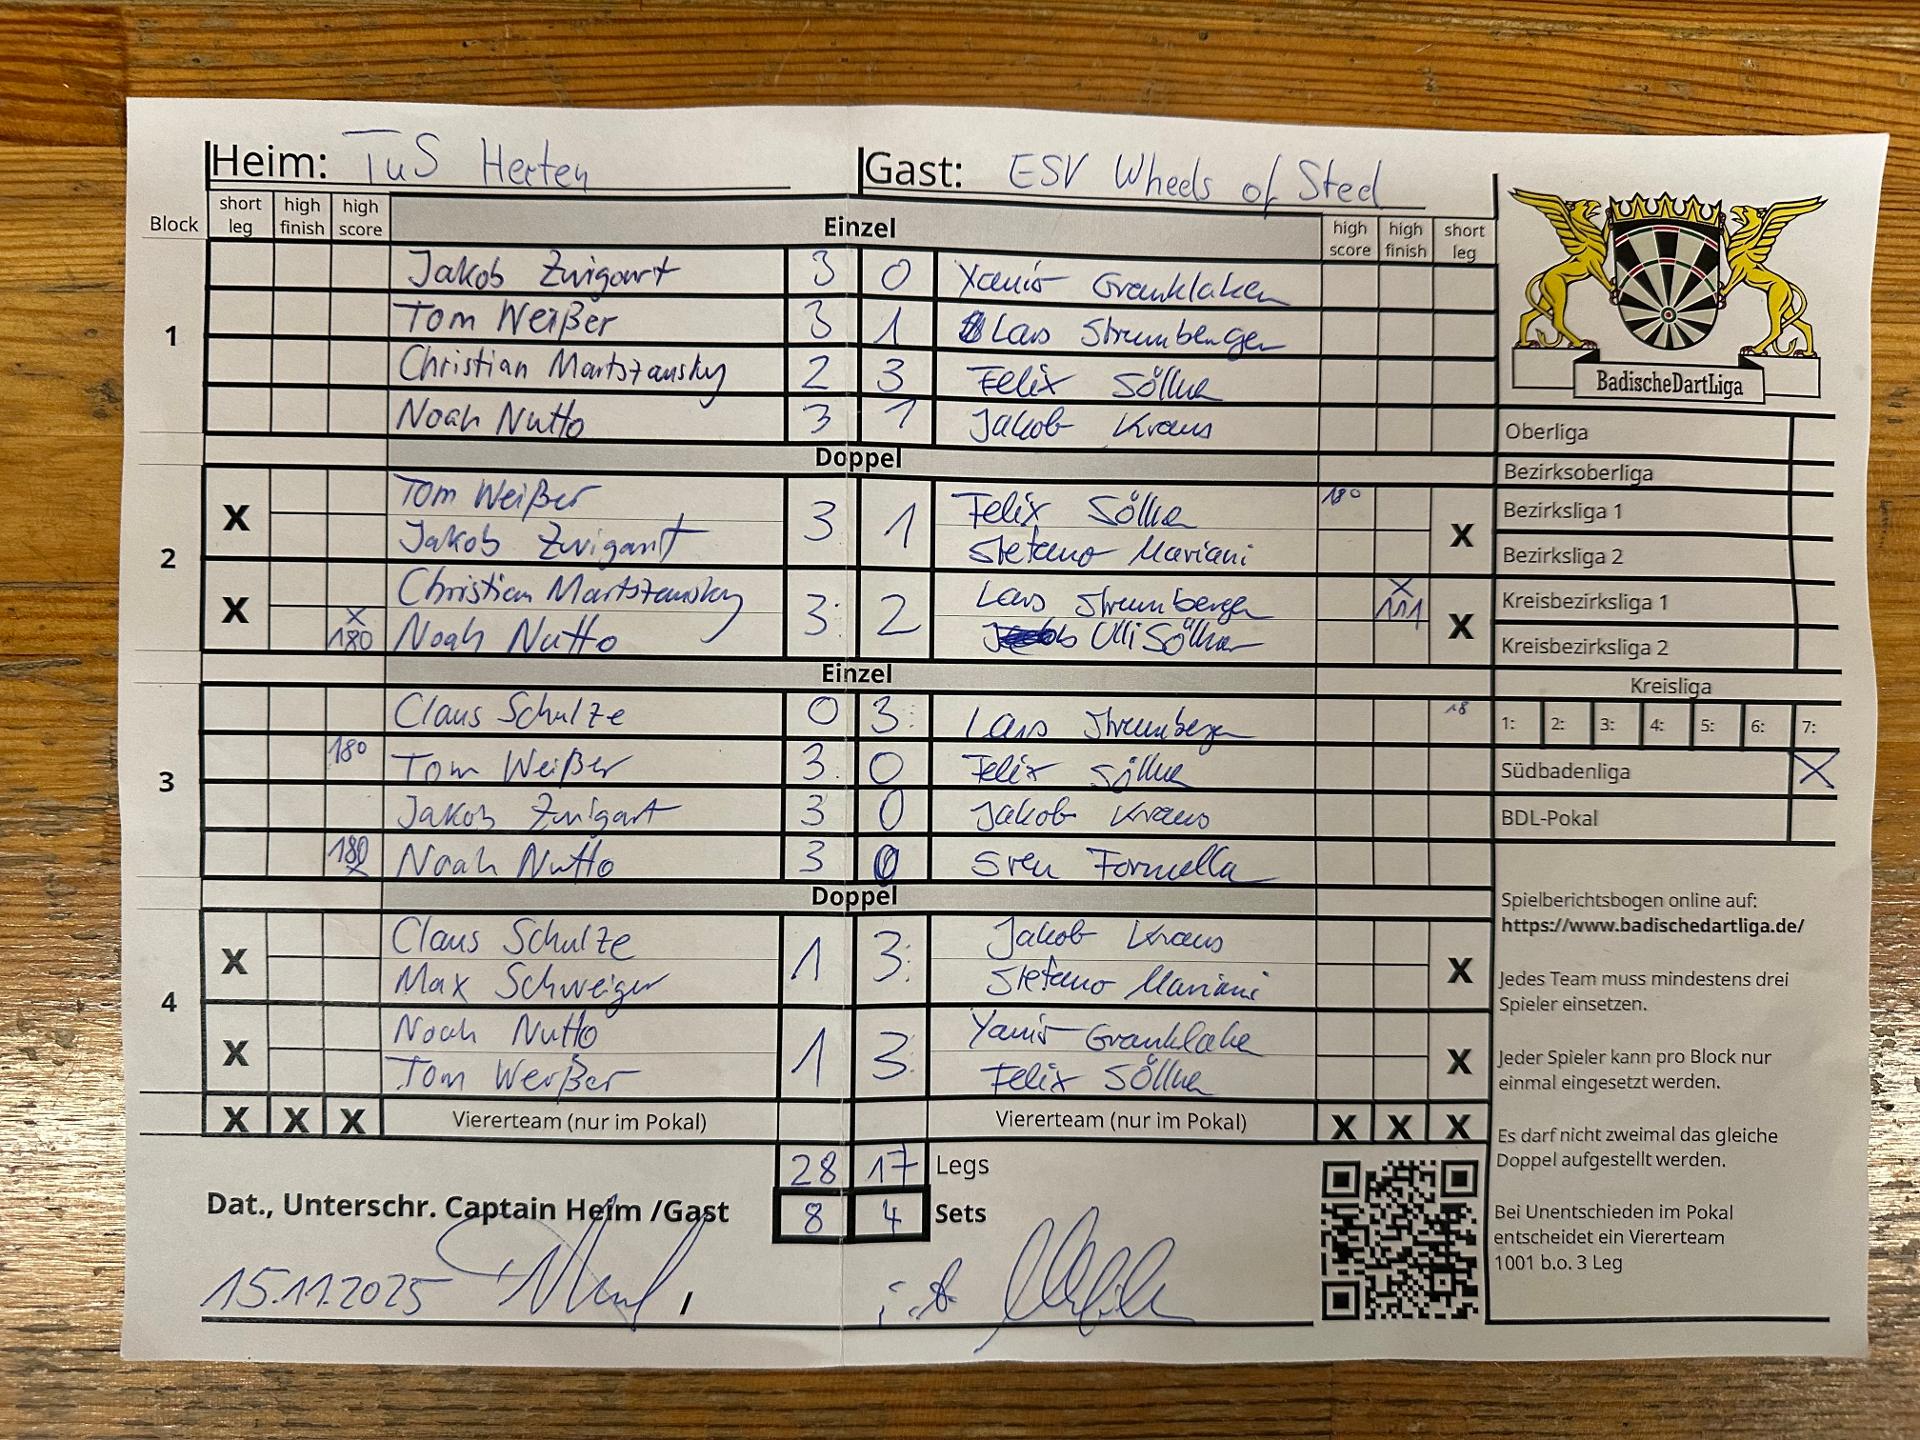 Heim: TuS Herten Gast: ESV Wheels of Steel
Block short leg high finish high score Einzel high score high finish short leg
1
Jakob Zwigart 3 0 Yanis Granklaken
Tom Weißer 3 1 Lars Strumberger
Christian Martszansky 2 3 Felix Söllner
Noah Nutto 3 1 Jakob Kraus
Doppel
2
X Tom Weißer 3 1 Felix Söllner 180 X
Jakob Zwigart Stefano Mariani
X Christian Martszansky 3: 2 Lars Strumberger X 111 X
X 180 Noah Nutto Ulli Söllner
Einzel
3
Claus Schulze 0 3: Lars Strumberger 18
180 Tom Weißer 3 0 Felix Söllner
Jakob Zwigart 3 0 Jakob Kraus
180 X Noah Nutto 3 0 Sven Formella
Doppel
4
X Claus Schulze 1 3: Jakob Kraus X
Max Schweiger Stefano Mariani
X Noah Nutto 1 3: Yanis Granklake X
Tom Weißer Felix Söllner
X X X Viererteam (nur im Pokal) Viererteam (nur im Pokal) X X X
28 17 Legs
Dat., Unterschr. Captain Heim /Gast 8 4 Sets
15.11.2025 / i.A.
BadischeDartLiga
Oberliga
Bezirksoberliga
Bezirksliga 1
Bezirksliga 2
Kreisbezirksliga 1
Kreisbezirksliga 2
Kreisliga
1: 2: 3: 4: 5: 6: 7:
Südbadenliga X
BDL-Pokal
Spielberichtsbogen online auf:
https://www.badischedartliga.de/
Jedes Team muss mindestens drei
Spieler einsetzen.
Jeder Spieler kann pro Block nur
einmal eingesetzt werden.
Es darf nicht zweimal das gleiche
Doppel aufgestellt werden.
Bei Unentschieden im Pokal
entscheidet ein Viererteam
1001 b.o. 3 Leg